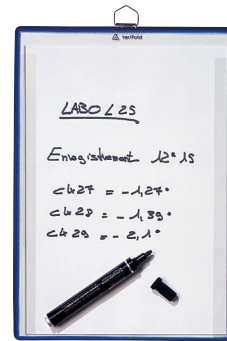 tarifold
LABO L25
Enregistrement 12° 15
ck 27 = -1,27°
ck 28 = -1,39°
ck 29 = -2,1°